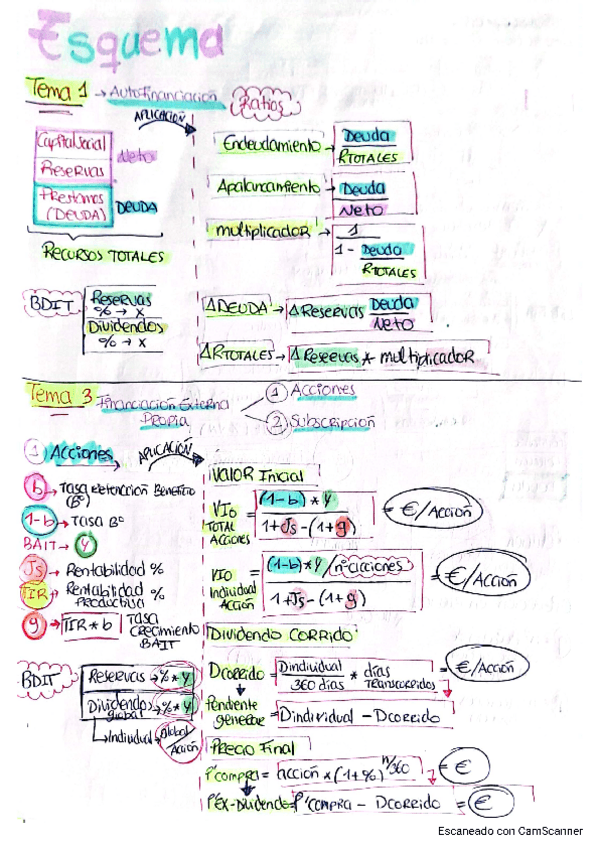 Esquema
Tema 1 → Autofinanciación
Ratios
APLICACIÓN
Capital Social
Reservas
Neto
Prestamos
(DEUDA)
DEUDA
RECURSOS TOTALES
Endeudamiento → Deuda
RTOTALES
Apalancamiento → Deuda
Neto
multiplicador → 1
1 - Deuda
RTOTALES
BDIT
Reservas
% → x
Dividendos
% → x
ΔDEUDA → ΔReservas Deuda
Neto
ΔRTOTALES → ΔReservas * multiplicador
Tema 3 → Financiación Externa
Propia
1 Acciones
2 Subscripción
1 Acciones
APLICACIÓN
b → Tasa retención Beneficio
(Bº)
1-b → TASA Bº
BAIT → Y
Js → Rentabilidad %
TIR → Rentabilidad %
Productiva
g → TIR * b TASA
CRECIMIENTO
BAIT
VALOR Inicial
VIo = (1-b) * Y = €/Acción
TOTAL
ACCIONES
1+Js-(1+g)
VIo = (1-b)*Y/nºacciones = €/Acción
Individual
Acción
1+Js-(1+g)
Dividendo CORRIDO
BDIT
Reservas → % * Y
Dividendos → % * Y
global
Individual → Global
Acción
Dcorrido = Dindividual * días = €/Acción
360 días TRANSCORRIDOS
Pendiente = Dindividual - Dcorrido
PRECIO Final
P'compra = acción * (1+%) n/360 = €
P'Ex-Dividendo = P'COMPRA - DCORRIDO = €
Escaneado con CamScanner